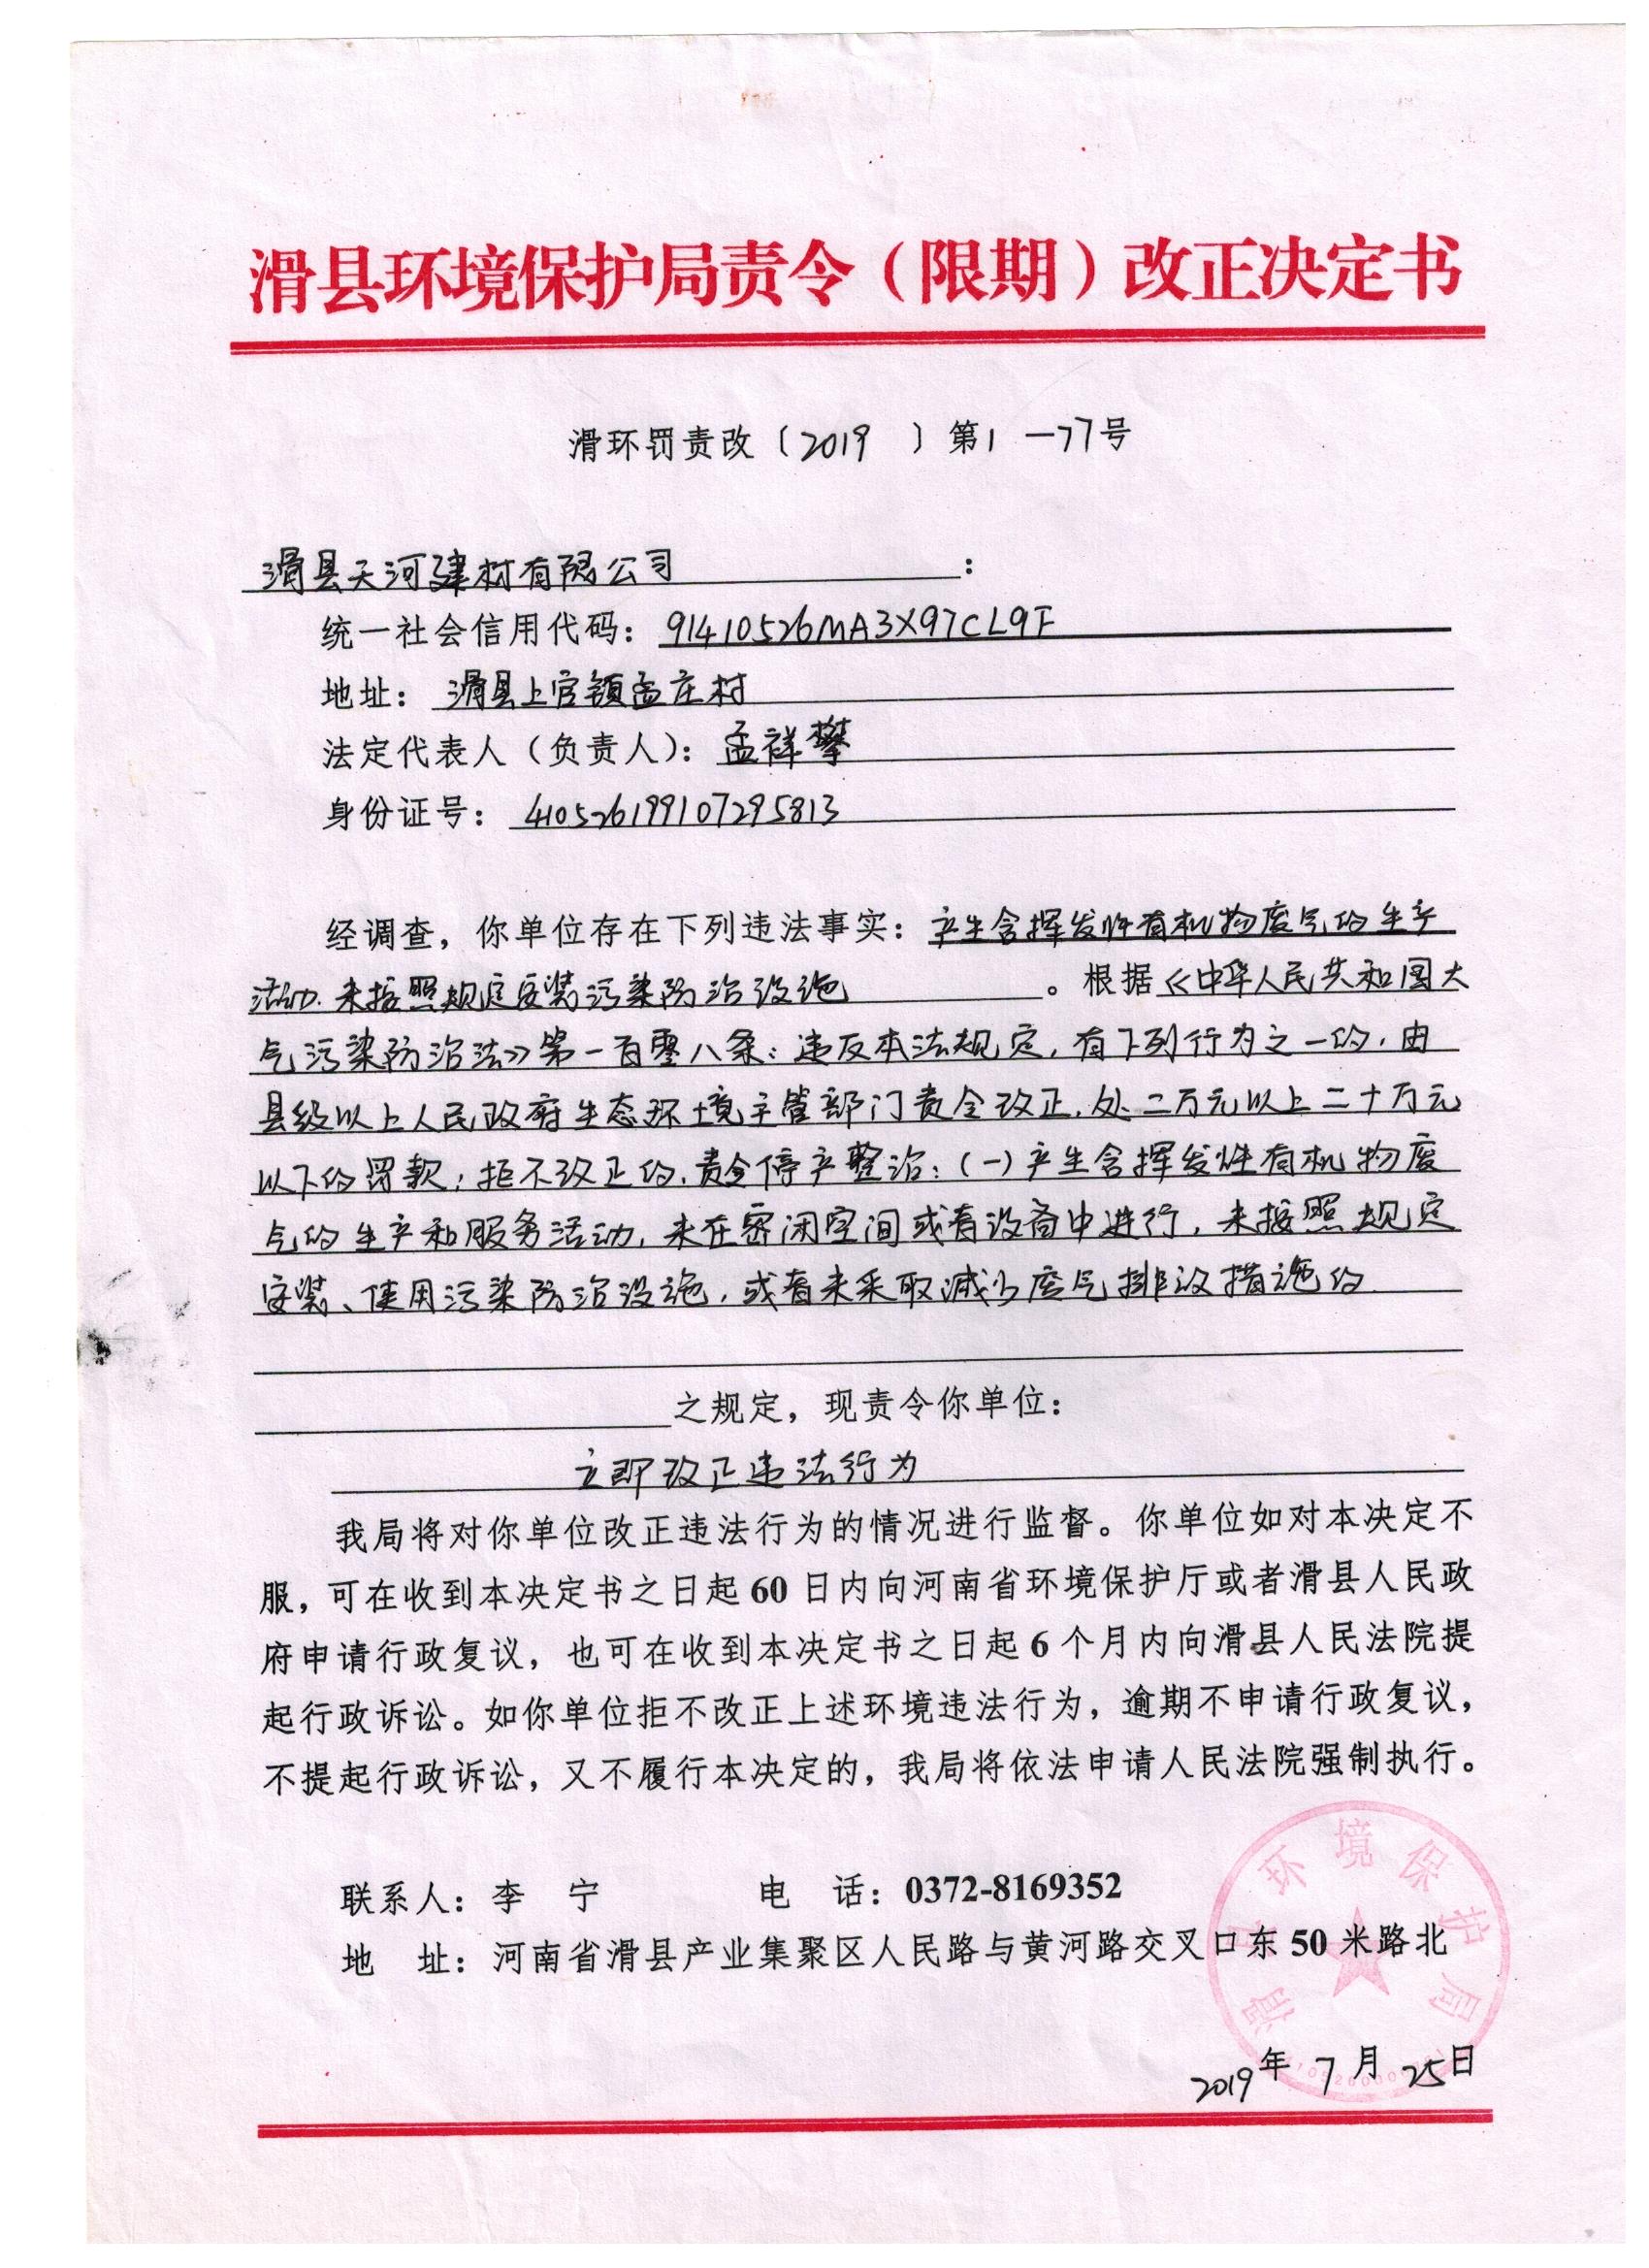 滑县环境保护局责令（限期）改正决定书
滑环罚责改〔2019 〕第1 一77号
滑县天河建材有限公司：
统一社会信用代码：91410526MA3X97CL9F
地址：滑县上官镇孟庄村
法定代表人（负责人）：孟祥攀
身份证号：410526199107295813
经调查，你单位存在下列违法事实：产生含挥发性有机物废气的生产
活动，未按照规定安装污染防治设施。根据《中华人民共和国大
气污染防治法》第一百零八条：违反本法规定，有下列行为之一的，由
县级以上人民政府生态环境主管部门责令改正，处二万元以上二十万元
以下的罚款；拒不改正的，责令停产整治：（一）产生含挥发性有机物废
气的生产和服务活动，未在密闭空间或者设备中进行，未按照规定
安装、使用污染防治设施，或者未采取减少废气排放措施的
之规定，现责令你单位：
立即改正违法行为
我局将对你单位改正违法行为的情况进行监督。你单位如对本决定不
服，可在收到本决定书之日起60日内向河南省环境保护厅或者滑县人民政
府申请行政复议，也可在收到本决定书之日起6个月内向滑县人民法院提
起行政诉讼。如你单位拒不改正上述环境违法行为，逾期不申请行政复议，
不提起行政诉讼，又不履行本决定的，我局将依法申请人民法院强制执行。
联系人：李 宁 电 话：0372-8169352
地 址：河南省滑县产业集聚区人民路与黄河路交叉口东50米路北
滑县环境保护局
2019年7月25日